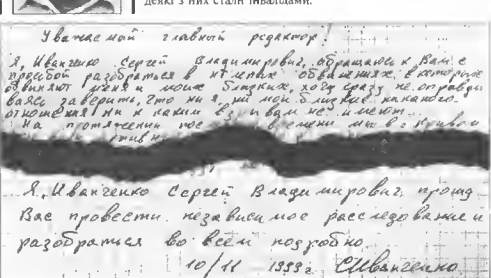 деякі з них стали інвалідами.
Уважаемый главный редактор!
Я, Иванченко Сергей Владимирович, обращаюсь к Вам с
просьбой разобраться в нелепых обвинениях в которых
обвиняют меня и моих близких, хочу сразу не оправды
ваясь заверить, что ни я, ни мои близкие никакого
отношения ни к каким вз вам не имеют...
На протяжении пос времени мы в г. Кривом
Я, Иванченко Сергей Владимирович, прошу
Вас провести независимое расследование и
разобраться во всём подробно
10/11 - 1999г. СИванченко